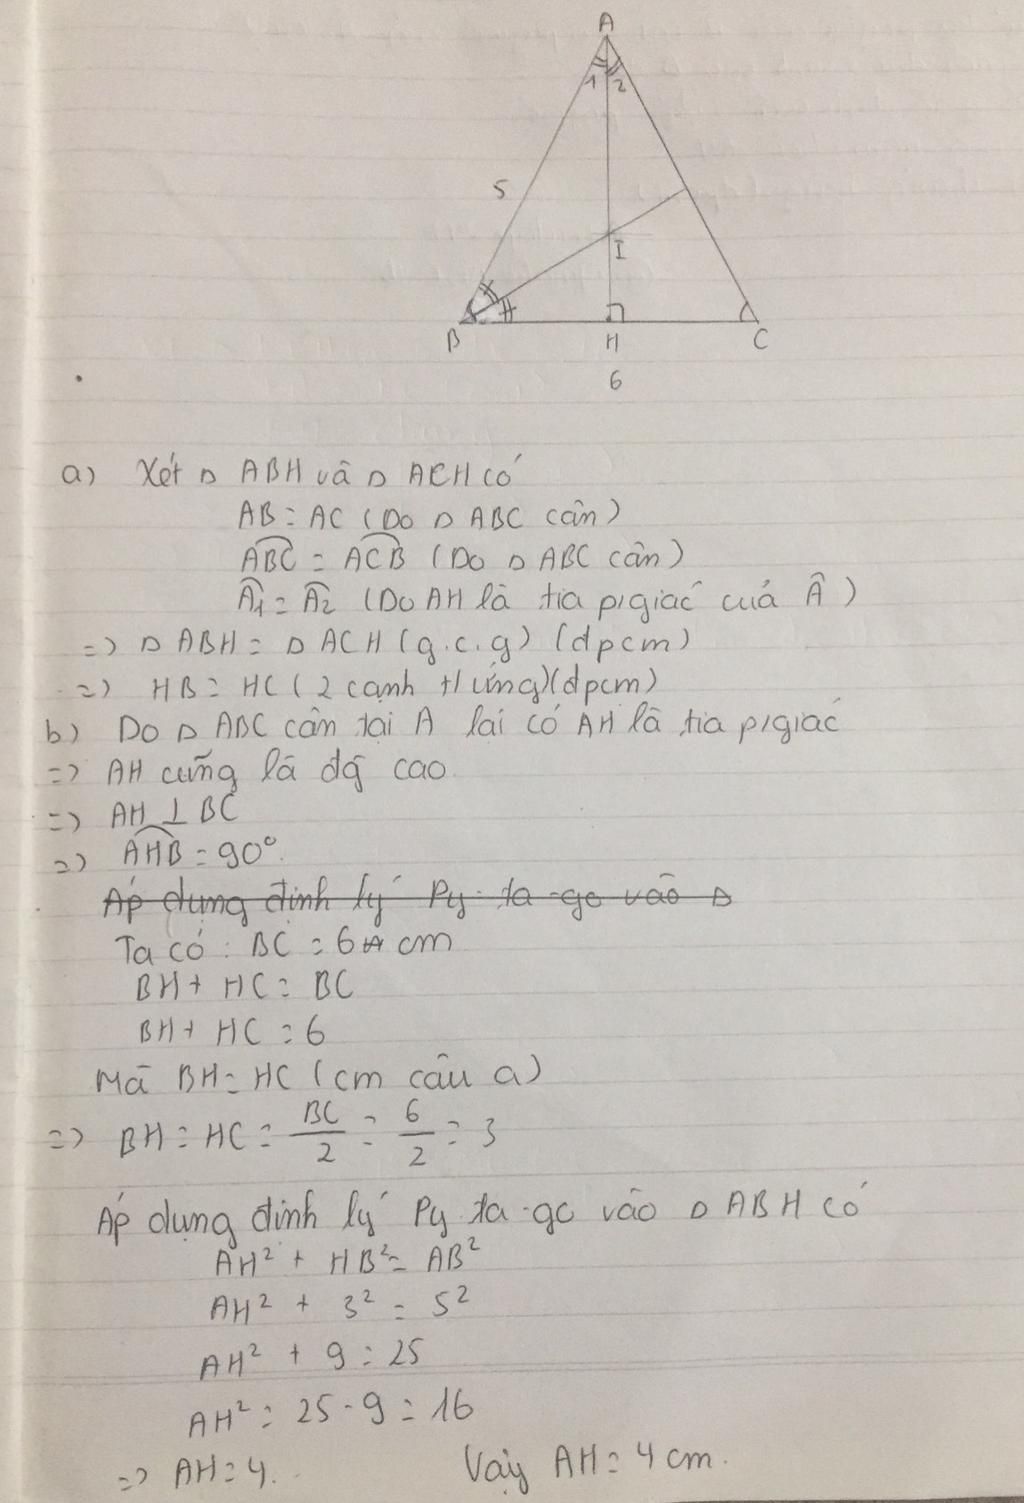 A
1 2
5
I
B H C
6
a) Xét Δ ABH và Δ ACH có
AB = AC (Do Δ ABC cân)
ABC = ACB (Do Δ ABC cân)
Â1 = Â2 (Do AH là tia p/giác của Â)
=> Δ ABH = Δ ACH (g.c.g) (đpcm)
=> HB = HC (2 cạnh t/ứng)(đpcm)
b) Do Δ ABC cân tại A lại có AH là tia p/giác
=> AH cũng là đg̀ cao
=> AH ⊥ BC
=> AHB = 90°.
Áp dụng định lý Py-ta-go vào Δ
Ta có : BC = 6 cm
BH + HC = BC
BH + HC = 6
Mà BH = HC (cm câu a)
=> BH = HC = BC/2 = 6/2 = 3
Áp dụng định lý Py-ta-go vào Δ ABH có
AH² + HB² = AB²
AH² + 3² = 5²
AH² + 9 = 25
AH² = 25 - 9 = 16
=> AH = 4. Vậy AH = 4 cm.